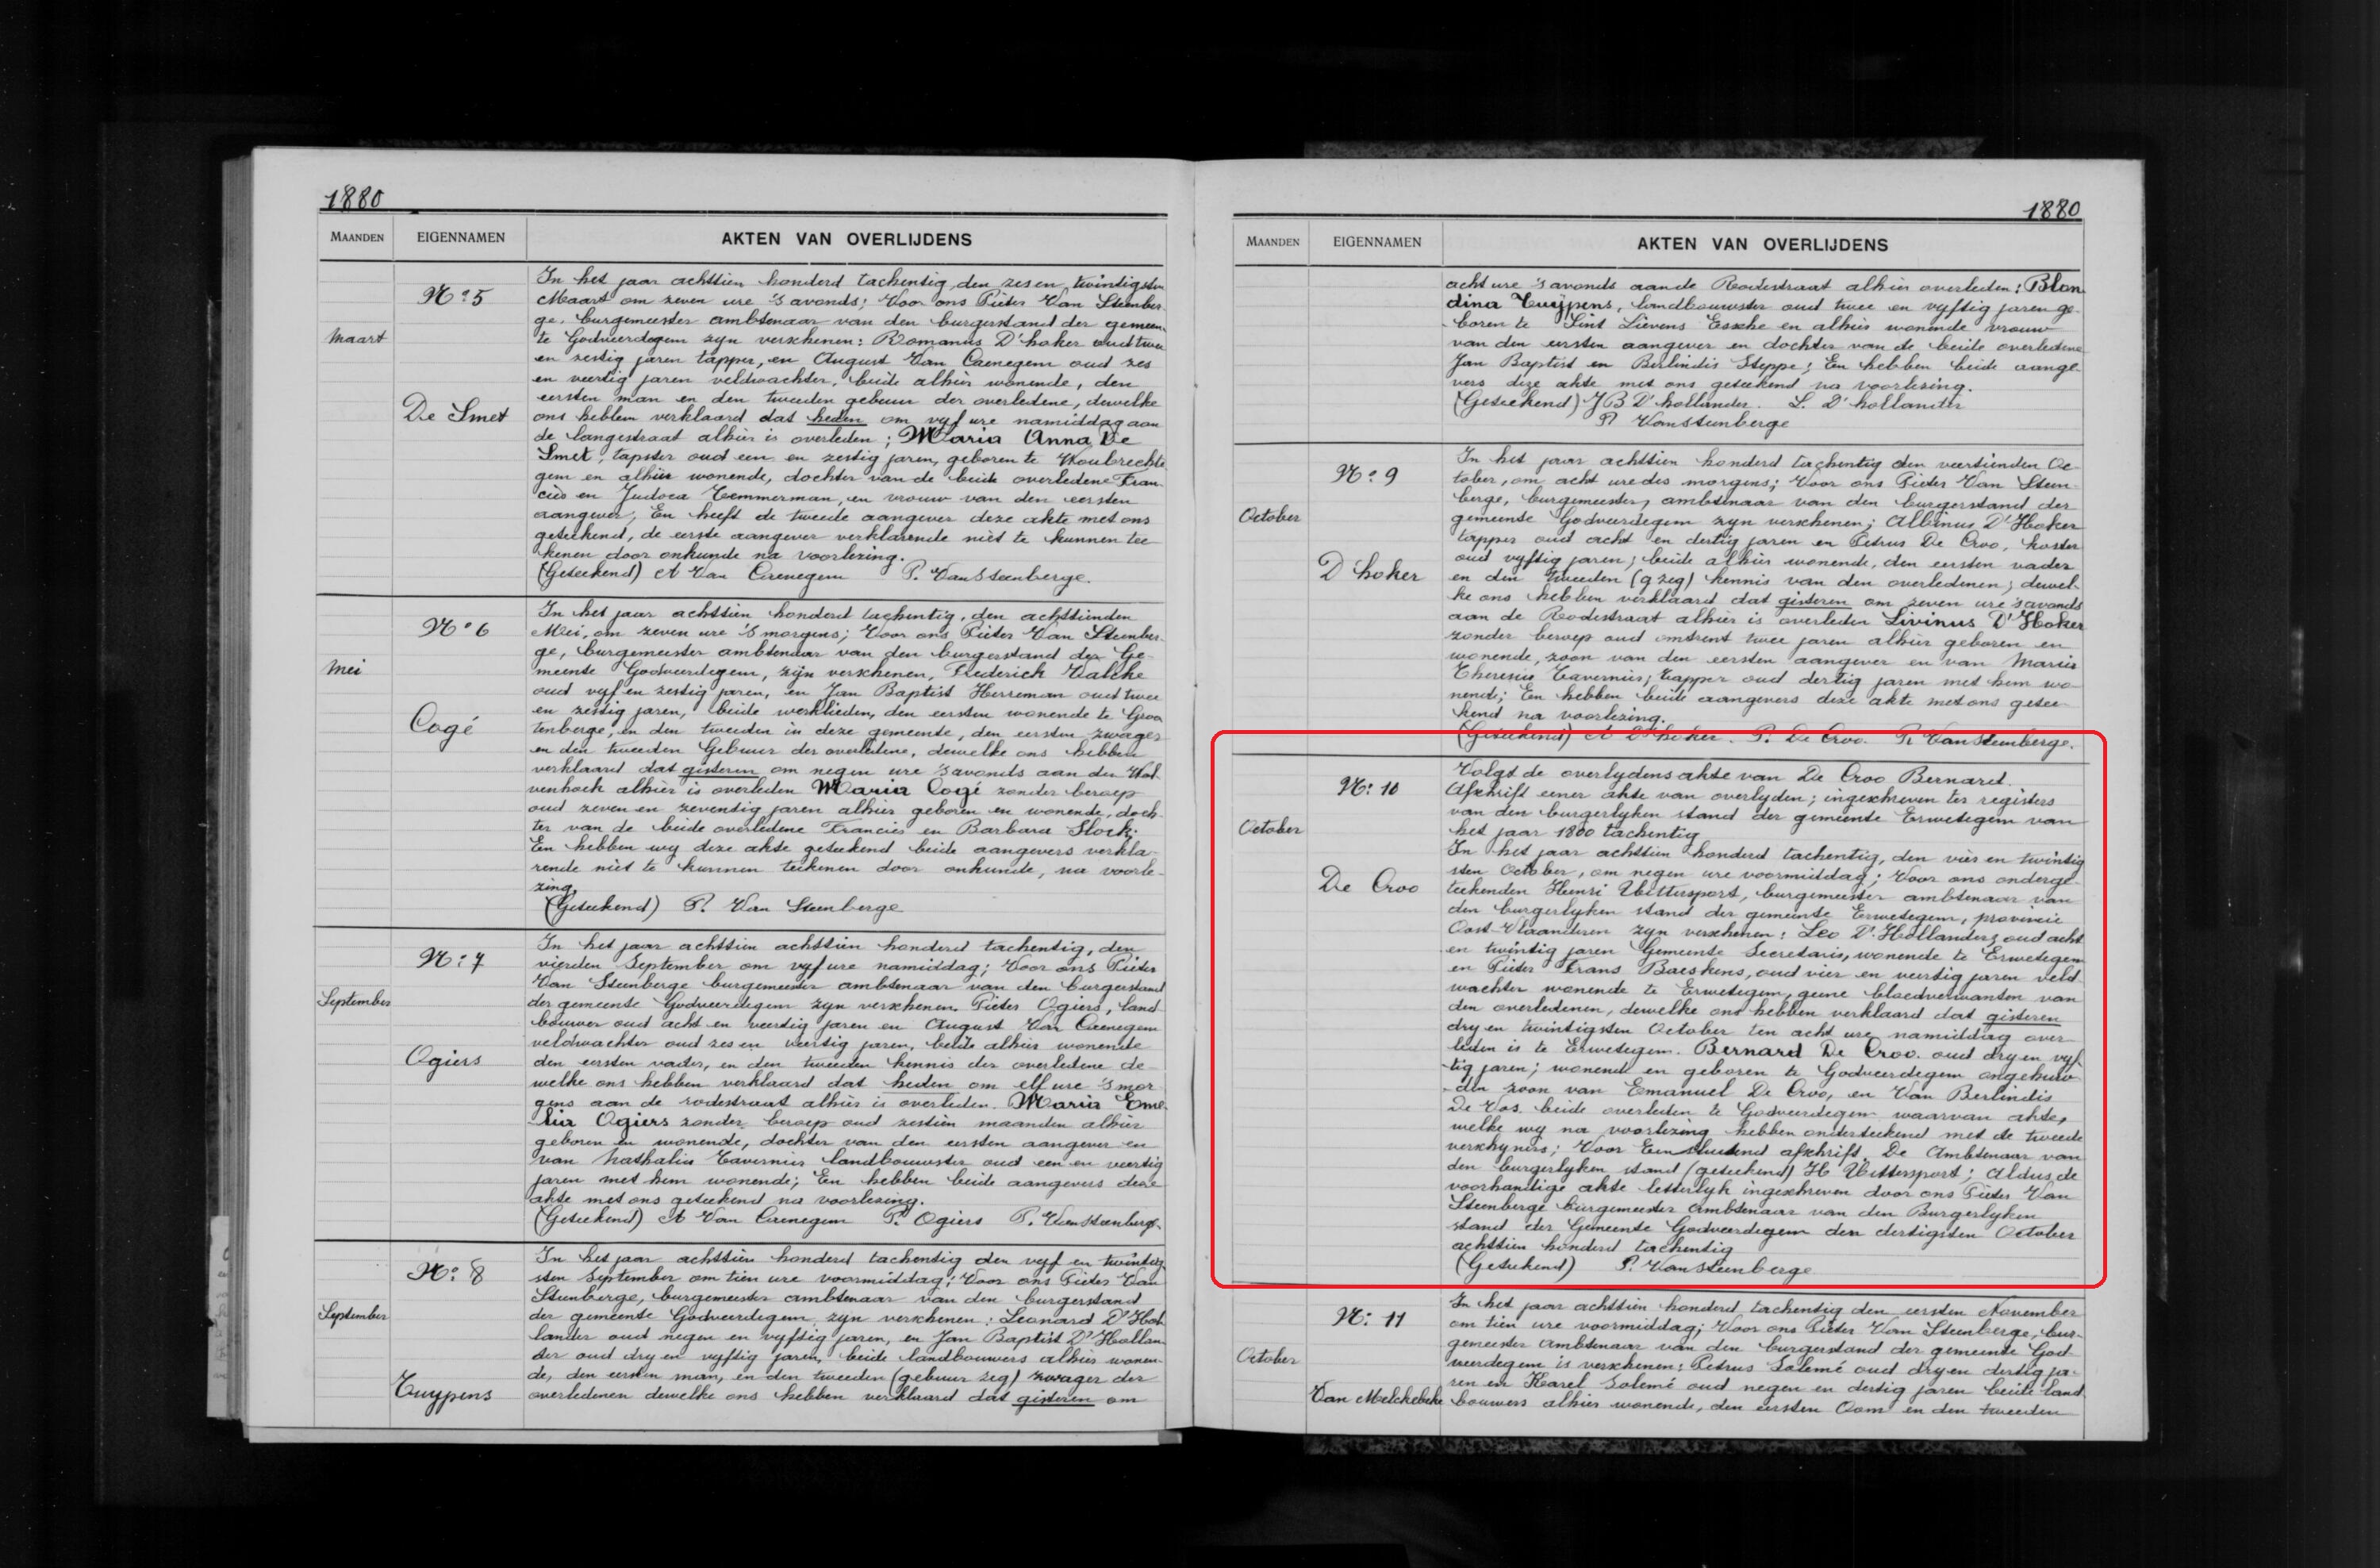 1880
MAANDEN EIGENNAMEN AKTEN VAN OVERLIJDENS
In het jaar achttien honderd tachentig, den zes en twintigsten
Nº 5 Maart om zeven ure 's avonds; Voor ons Pieter Van Steenber-
ge, burgemeester ambtenaar van den burgerstand der gemeen-
Maart te Godveerdegem zyn verschenen: Romanus D'hoker oud twee
en zestig jaren tapper, en August Van Caenegem oud zes
en veertig jaren veldwachter, beide alhier wonende, den
eersten man en den tweeden gebuur der overledene, dewelke
De Smet ons hebben verklaard dat heden om vyf ure namiddag aan
de langestraat alhier is overleden; Maria Anna De
Smet, tapster oud een en zestig jaren, geboren te Woubrechte
gem en alhier wonende, dochter van de beide overledene Fran-
cies en Judoca Temmerman, en vrouw van den eersten
aangever; En heeft de tweede aangever deze akte met ons
geteekend, de eerste aangever verklarende niet te kunnen tee
kenen door onkunde na voorlezing.
(Geteekend) A Van Caenegem P. VanSteenberge.
In het jaar achttien honderd tachentig, den achttienden
Nº 6 Mei, om zeven ure 's morgens; Voor ons Pieter Van Steenber-
ge, burgemeester ambtenaar van den burgerstand der Ge-
Mei meente Godveerdegem, zijn verschenen, Frederick Valcke
oud vyf en zestig jaren, en Jan Baptist Herreman oud twee
en zestig jaren, beide werklieden, den eersten wonende te Groo
Cogé tenberge, en den tweeden in deze gemeente, den eersten zwager
en den tweeden Gebuur der overledene, dewelke ons hebben
verklaard dat gisteren om negen ure 's avonds aan den Wol-
venhoek alhier is overleden Maria Cogé zonder beroep
oud zeven en zeventig jaren alhier geboren en wonende, doch-
ter van de beide overledene Francies en Barbara Stock;
En hebben wy deze akte geteekend beide aangevers verkla-
rende niet te kunnen teekenen door onkunde, na voorle-
zing,
(Geteekend) P. Van Steenberge
In het jaar achttien achttien honderd tachentig, den
Nº 7 vierden September om vyf ure namiddag; Voor ons Pieter
Van Steenberge burgemeester ambtenaar van den burgerstand
September der gemeente Godveerdegem zyn verschenen. Pieter Ogiers, land-
bouwer oud acht en veertig jaren en August Van Caenegem
veldwachter oud zes en veertig jaren, beide alhier wonende
Ogiers den eersten vader, en den tweeden kennis der overledene de-
welke ons hebben verklaard dat heden om elf ure 's mor-
gens aan de rodestraat alhier is overleden. Maria Eme-
lia Ogiers zonder beroep oud zestien maanden alhier
geboren en wonende, dochter van den eersten aangever en
van Nathalia Tavernier landbouwster oud een en veertig
jaren met hem wonende; En hebben beide aangevers deze
akte met ons geteekend na voorlezing.
(Geteekend) A Van Caenegem P. Ogiers P. VanSteenberge.
In het jaar achttien honderd tachentig den vyf en twintig
Nº 8 sten September om tien ure voormiddag; Voor ons Pieter Van
Steenberge, burgemeester ambtenaar van den burgerstand
September der gemeente Godveerdegem zyn verschenen: Leonard D'Hol-
lander oud negen en vyftig jaren, en Jan Baptist D'Hollan-
der oud dry en vyftig jaren, beide landbouwers alhier wonen-
de, den eersten man, en den tweeden (gebuur zeg) zwager der
Tuypens overledenen dewelke ons hebben verklaard dat gisteren om
1880
MAANDEN EIGENNAMEN AKTEN VAN OVERLIJDENS
acht ure 's avonds aan de Rodestraat alhier overleden: Blon-
dina Tuypens, landbouwster oud twee en vyftig jaren ge-
boren te Sint Lievens Essche en alhier wonende vrouw
van den eersten aangever en dochter van de beide overledene
Jan Baptist en Berlindis Steppe; En hebben beide aange
vers deze akte met ons geteekend na voorlezing.
(Geteekend) J B D'hollander. L. D'hollander
P. VanSteenberge
In het jaar achttien honderd tachentig den veertienden Oc
Nº 9 tober, om acht ure des morgens; Voor ons Pieter Van Steen-
berge, burgemeester, ambtenaar van den burgerstand der
October gemeente Godveerdegem zyn verschenen; Albinus D'Hoker
tapper oud acht en dertig jaren en Petrus De Croo, koster
oud vyftig jaren; beide alhier wonende, den eersten vader
D'hoker en den tweeden (g zeg) kennis van den overledenen; dewel-
ke ons hebben verklaard dat gisteren om zeven ure 's avonds
aan de Rodestraat alhier is overleden Livinus D'Hoker
zonder beroep oud omtrent twee jaren alhier geboren en
wonende, zoon van den eersten aangever en van Maria
Theresia Tavernier; tapper oud dertig jaren met hem wo-
nende; En hebben beide aangevers deze akte met ons getee-
kend na voorlezing.
(Geteekend) A D'hoker. P. De Croo. P. VanSteenberge.
Volgt de overlydens akte van De Croo Bernard.
Nº 10 Afschrift eener akte van overlyden; ingeschreven ter registers
van den burgerlyken stand der gemeente Erwetegem van
October het jaar 1800 tachentig
In het jaar achttien honderd tachentig, den vier en twintig
sten October, om negen ure voormiddag; Voor ons onderge-
De Croo teekenden Henri Uittersport, burgemeester ambtenaar van
den burgerlyken stand der gemeente Erwetegem, provincie
Oost-Vlaanderen zyn verschenen: Leo D'Hollander, oud acht
en twintig jaren Gemeente Secretaris, wonende te Erwetegem
en Pieter Frans Baeskens, oud vier en veertig jaren veld-
wachter wonende te Erwetegem, geene bloedverwanten van
den overledenen, dewelke ons hebben verklaard dat gisteren
dry en twintigsten October ten acht ure namiddag over-
leden is te Erwetegem. Bernard De Croo. oud dry en vyf
tig jaren; wonende en geboren te Godveerdegem ongehuw-
den zoon van Emanuel De Croo, en Van Berlindis
De Vos. beide overleden te Godveerdegem waarvan akte,
welke wy na voorlezing hebben onderteekend met de tweede
verschyners; Voor Eensluidend afschrift, De Ambtenaar van
den burgerlyken stand (geteekend) H Uittersport; Aldus de
voorhandige akte letterlyk ingeschreven door ons Pieter Van
Steenberge burgemeester Ambtenaar van den Burgerlyken
stand der Gemeente Godveerdegem den dertigsten October
achttien honderd tachentig
(Geteekend) P. VanSteenberge
In het jaar achttien honderd tachentig den eersten November
Nº 11 om tien ure voormiddag; Voor ons Pieter Van Steenberge, bur-
gemeester Ambtenaar van den burgerstand der gemeente God
October veerdegem is verschenen: Petrus Solemé oud dry en dertig ja-
ren en Karel Solemé oud negen en dertig jaren beide land
Van Melckebeke bouwers alhier wonende, den eersten Oom en den tweeden